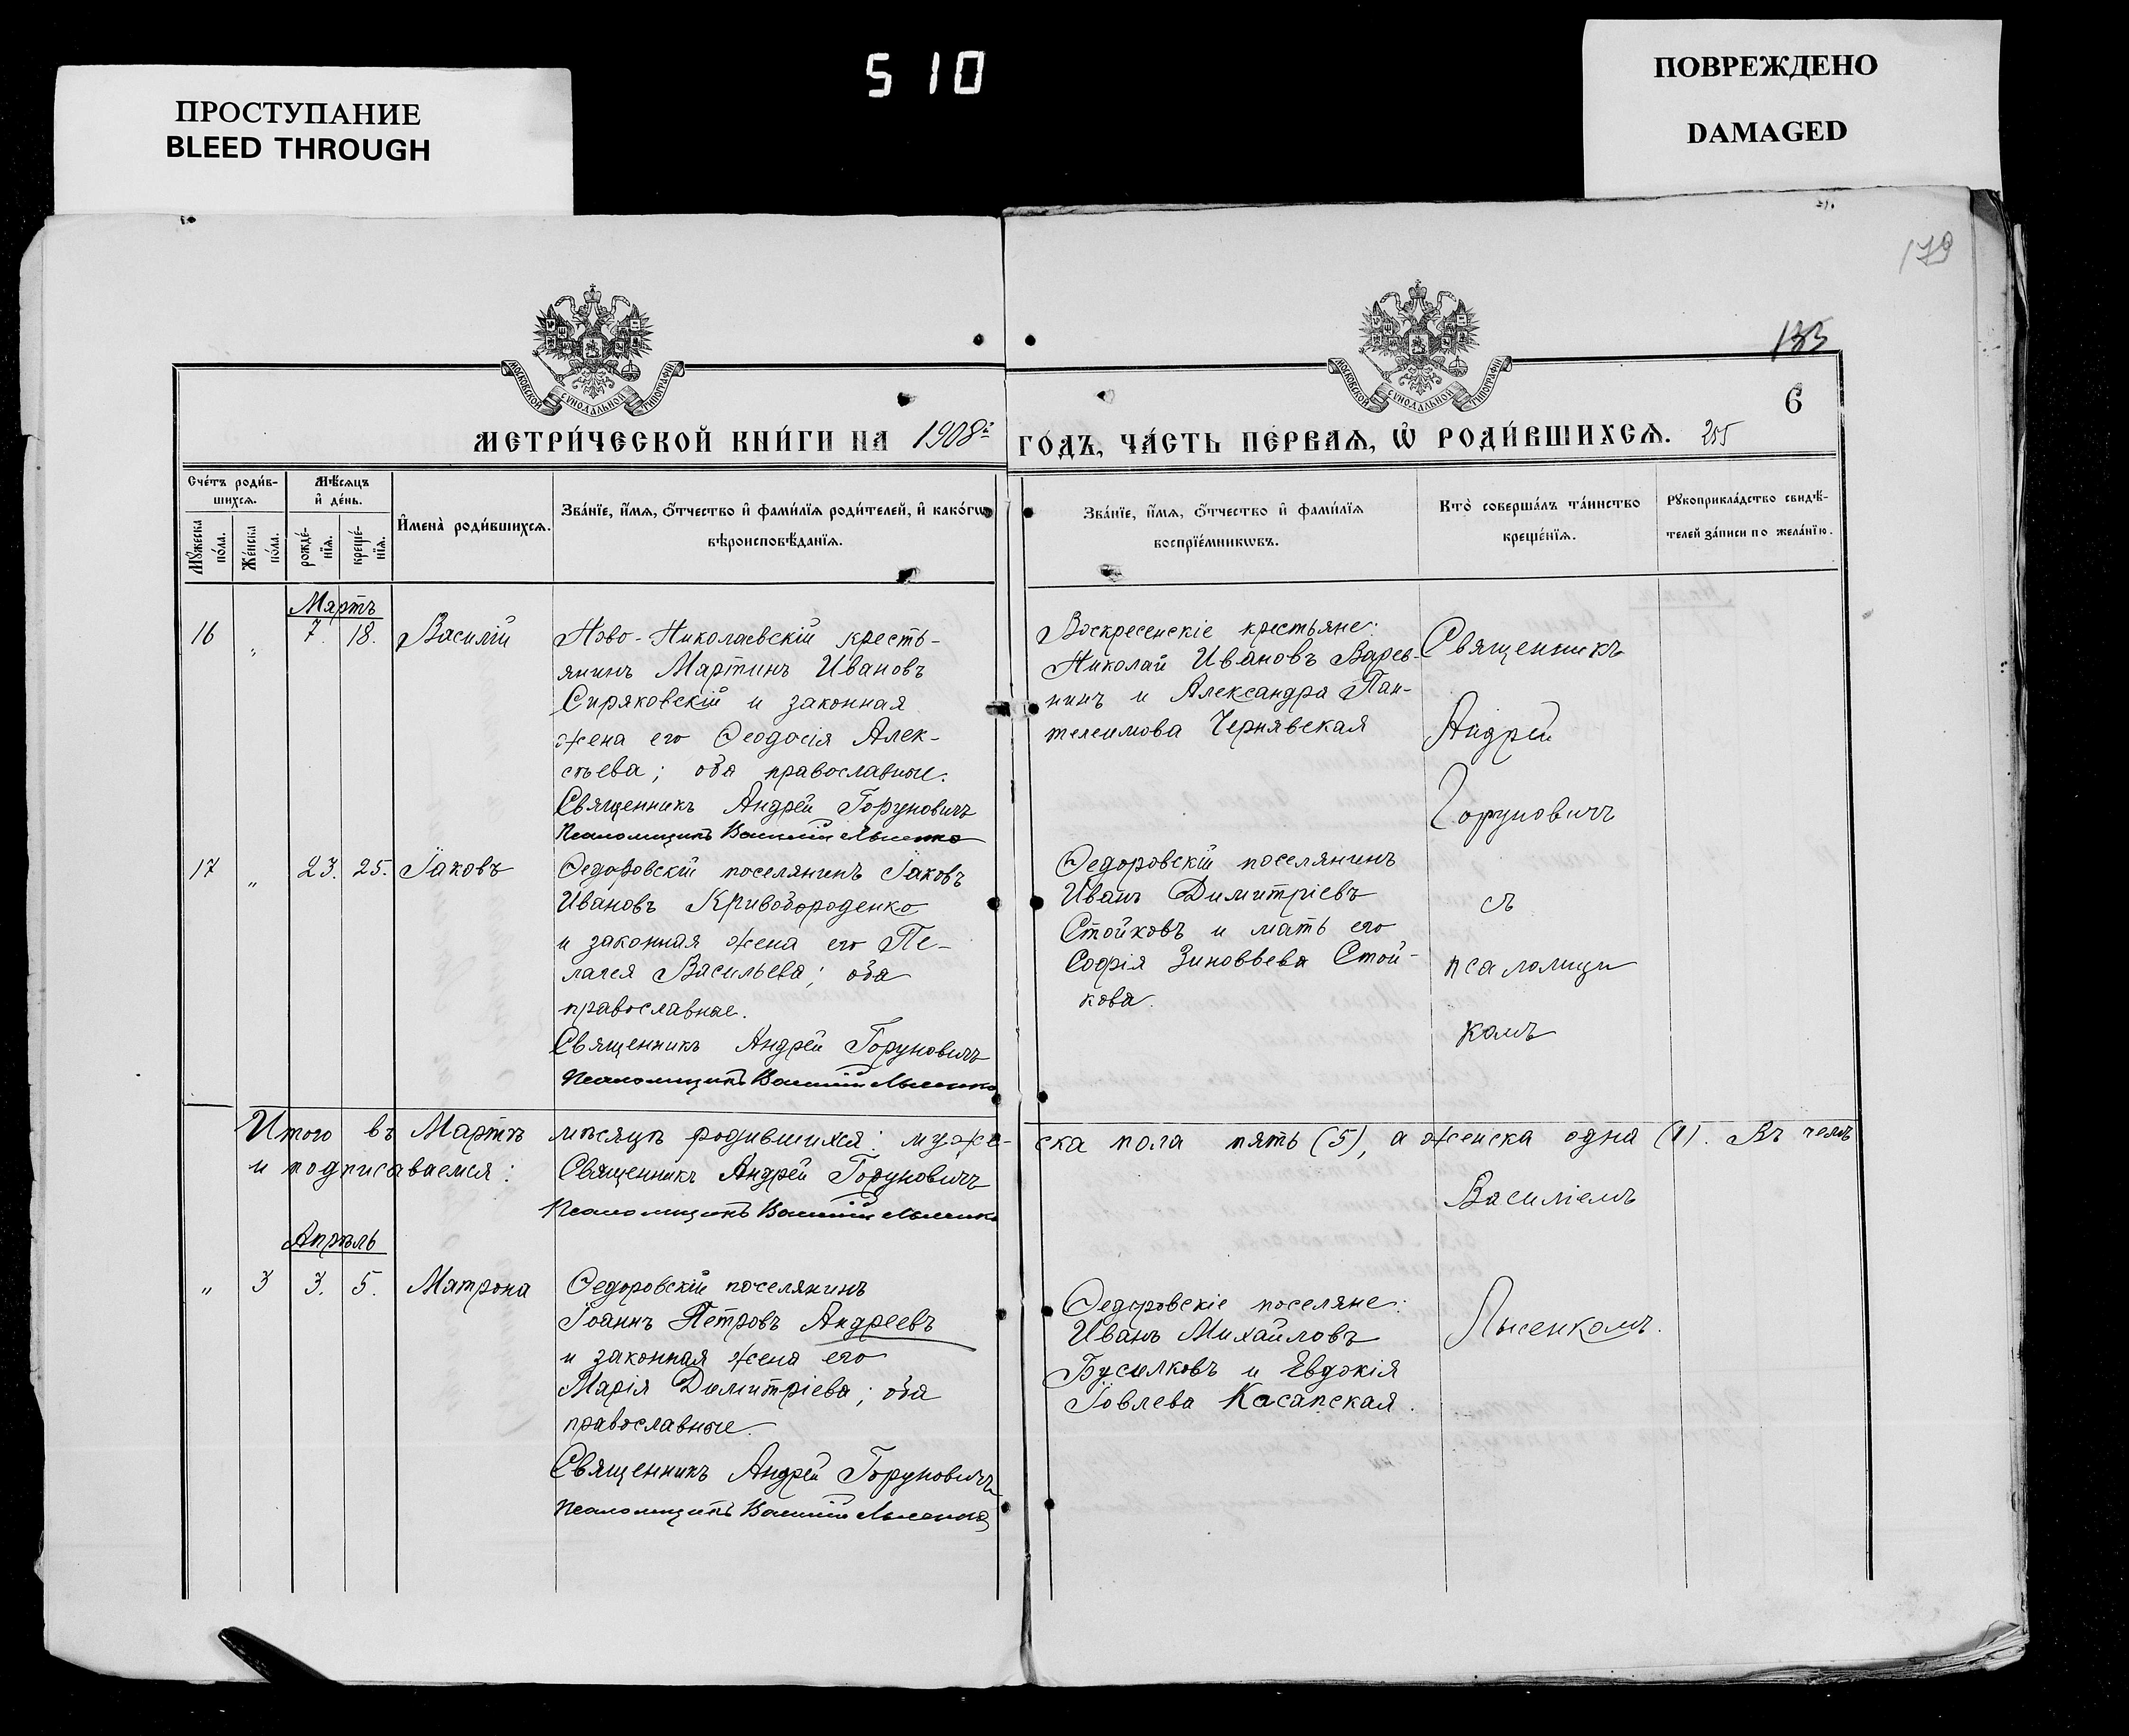 ПРОСТУПАНИЕ
BLEED THROUGH
510
ПОВРЕЖДЕНО
DAMAGED
179
6
МОСКОВСКОЙ СУНОДАЛЬНОЙ ТИПОГРАФІИ
МОСКОВСКОЙ СУНОДАЛЬНОЙ ТИПОГРАФІИ
МЕТРИ́ЧЕСКОЙ КНИ́ГИ НА 1908й ГО́ДЪ, ЧА́СТЬ ПЕ́РВАѦ, Ѡ҆ РОДИ́ВШИХСѦ. 205
Сче́тъ роди́в-
шихсѧ.
Мѣ́сѧцъ
и҆ де́нь.
Мꙋ́жеска
по́ла.
Же́нска
по́ла.
рожде́-
нїѧ.
креще́-
нїѧ.
И҆мена̀ роди́вшихсѧ.
Зва́нїе, и҆́мѧ, ѻ҆́тчество и҆ фами́лїѧ роди́телей, и҆ како́гѡ
вѣроисповѣ́данїѧ.
Зва́нїе, и҆́мѧ, ѻ҆́тчество и҆ фами́лїѧ
воспрїе́мникѡвъ.
Кто̀ соверша́лъ та́инство
креще́нїѧ.
Рꙋкоприкла́дство свидѣ́-
телей за́писи по жела́нїю.
Мартъ
16 " 7. 18. Василій
Ново-Николаевскій кресть-
янинъ Мартинъ Ивановъ
Сиряковскій и законная
жена его Ѳеодосія Алек-
сѣева; оба православные.
Священникъ Андрей Горуновичъ
Псаломщикъ Василій Лысенко
Воскресенскіе крестьяне:
Николай Ивановъ
нинъ и Александра Пан-
телеимова Чернявская
Священникъ
Андрей
Горуновичъ
17 " 23. 25. Іаковъ
Ѳедоровскій поселянинъ Іаковъ
Ивановъ Кривобороденко
и законная жена его Пе-
лагея Васильева; оба
православные.
Священникъ Андрей Горуновичъ
Псаломщикъ Василій Лысенко
Ѳедоровскій поселянинъ
Иванъ Димитріевъ
Стойковъ и мать его
Софія Зиновьева Стой-
кова.
съ
псаломщи
комъ
Итого въ Мартѣ мѣсяцѣ родившихся: муже-ска пола пять (5), а женска одна (1). Въ чемъ
и подписаваемся: Священникъ Андрей Горуновичъ
Псаломщикъ Василій Лысенко
Василіемъ
Апрѣль
" 3 3. 5. Матрона
Ѳедоровскій поселянинъ
Іоаннъ Петровъ Андреевъ
и законная жена его
Марія Димитріева; оба
православные.
Священникъ Андрей Горуновичъ
Псаломщикъ Василій Лысенко
Ѳедоровскіе поселяне:
Иванъ Михайловъ
Бусилковъ и Евдокія
Іовлева Касапская.
Лысенкомъ.